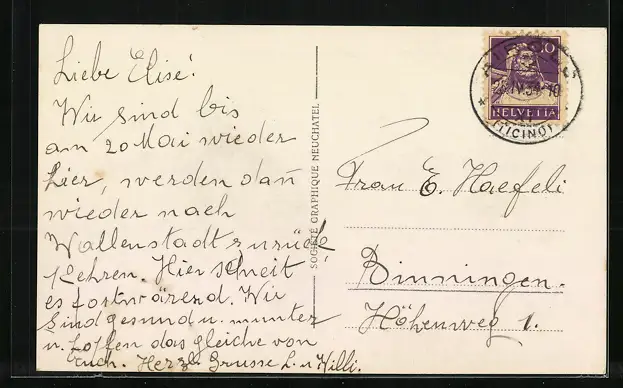 Liebe Elise!
Wir sind bis
am 20 Mai wieder
hier, werden dan
wieder nach
Wallenstadt zurück
kehren. Hier schneit
es fortwärend. Wir
sind gesund u. munter
u. hoffen das gleiche von
Euch. Herzl. Grüsse L. u Willi.
SOCIÉTÉ GRAPHIQUE NEUCHATEL
10
HELVETIA
(TICINO)
Frau E. Haefeli
Binningen.
Höhenweg 1.